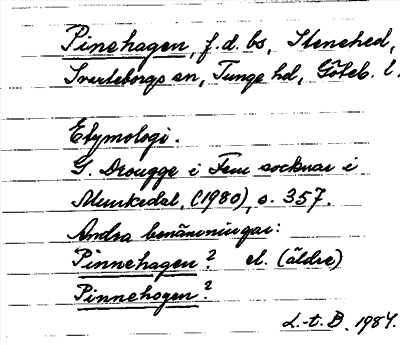 Pinehagen, f.d. bs, Stenehed,
Svarteborgs sn, Tunge hd, Göteb. l.
Etymologi.
G. Drougge i Fem socknar i
Munkedal, (1980), s. 357.
Andra benämningar:
Pinnehagen? el. (äldre)
Pinnehogen?
L.-t. B. 1984.